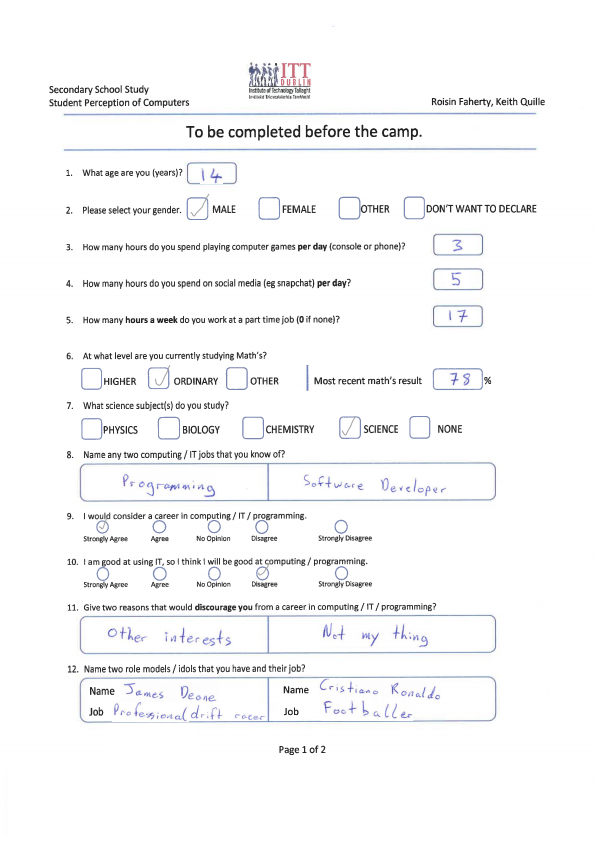 ITT
DUBLIN
Institute of Technology Tallaght
Secondary School Study
Student Perception of Computers
Roisin Faherty, Keith Quille
To be completed before the camp.
1. What age are you (years)? 14
2. Please select your gender. MALE FEMALE OTHER DON'T WANT TO DECLARE
3. How many hours do you spend playing computer games per day (console or phone)? 3
4. How many hours do you spend on social media (eg snapchat) per day? 5
5. How many hours a week do you work at a part time job (0 if none)? 17
6. At what level are you currently studying Math's?
HIGHER ORDINARY OTHER Most recent math's result 78 %
7. What science subject(s) do you study?
PHYSICS BIOLOGY CHEMISTRY SCIENCE NONE
8. Name any two computing / IT jobs that you know of?
Programming Software Developer
9. I would consider a career in computing / IT / programming.
Strongly Agree Agree No Opinion Disagree Strongly Disagree
10. I am good at using IT, so I think I will be good at computing / programming.
Strongly Agree Agree No Opinion Disagree Strongly Disagree
11. Give two reasons that would discourage you from a career in computing / IT / programming?
Other interests Not my thing
12. Name two role models / idols that you have and their job?
Name James Deane Name Cristiano Ronaldo
Job Professional drift racer Job Footballer
Page 1 of 2